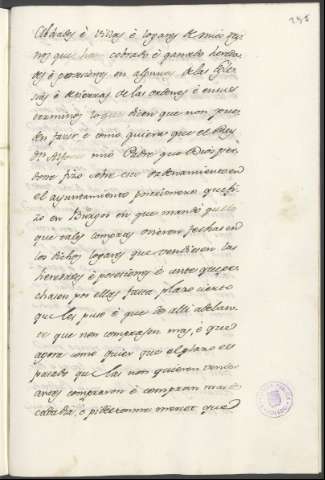 Abades è villas è logares de mios rey-
nos que han cobrado è ganado hereda-
des è posesiones en algunas de las Igle-
sias è tierras de las ordenes è en sus
terminos lo que dicen que non pue-
den facer è como quiera que el Rey
Dn Alfonso mio Padre que Dios per-
done fizo sobre esto ordenamiento en
el ayuntamiento postrimero que fi-
zo en Burgos en que mandó que los
que tales compras ovieron fechas en
los dichos logares que vendiesen las
heredades è posesiones
chasen por ellas fasta plazo cierto
que les puso è que de alli adelan-
te que non comprasen mas, è que
agora como quier que el plazo es
pasado que las non quieren vender
antes compraron è compran mas de
cada dia, è pidieronme merced que